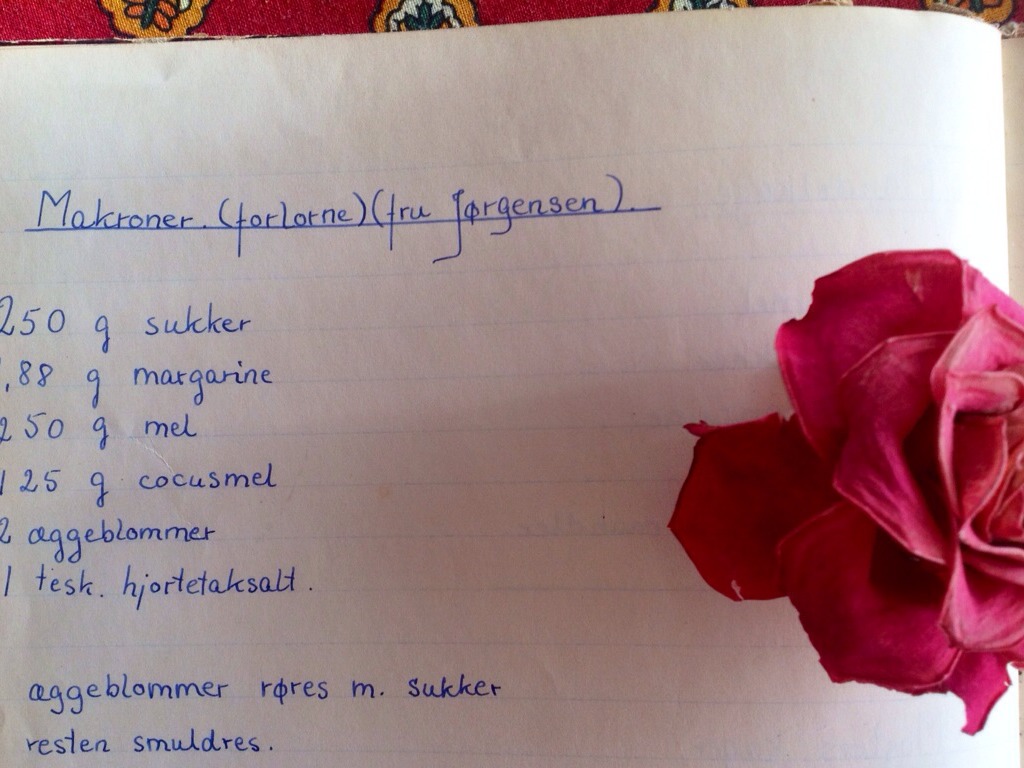 Makroner. (forlorne) (fru Jørgensen).
250 g sukker
188 g margarine
250 g mel
125 g cocusmel
2 æggeblommer
1 tesk. hjortetaksalt.
æggeblommer røres m. sukker
resten smuldres.